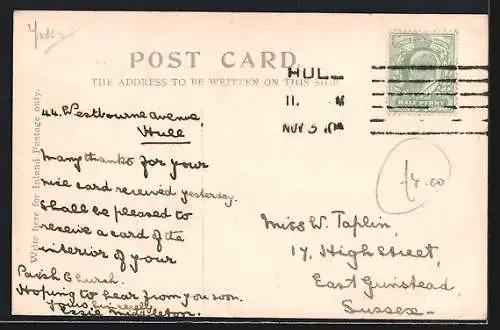 Yorks
POST CARD
THE ADDRESS TO BE WRITTEN ON THIS SIDE
HULL
11.
NOV 5
HALF PENNY
£4.00
Write here for Inland Postage only.
44, Westbourne avenue,
Hull
Many thanks for your
nice card received yesterday.
Shall be pleased to
receive a card of the
interior of your
Parish Church.
Hoping to hear from you soon.
Yours sincerely
Essie Middleton.
Miss W. Taplin,
17, High Street,
East Grinstead,
Sussex